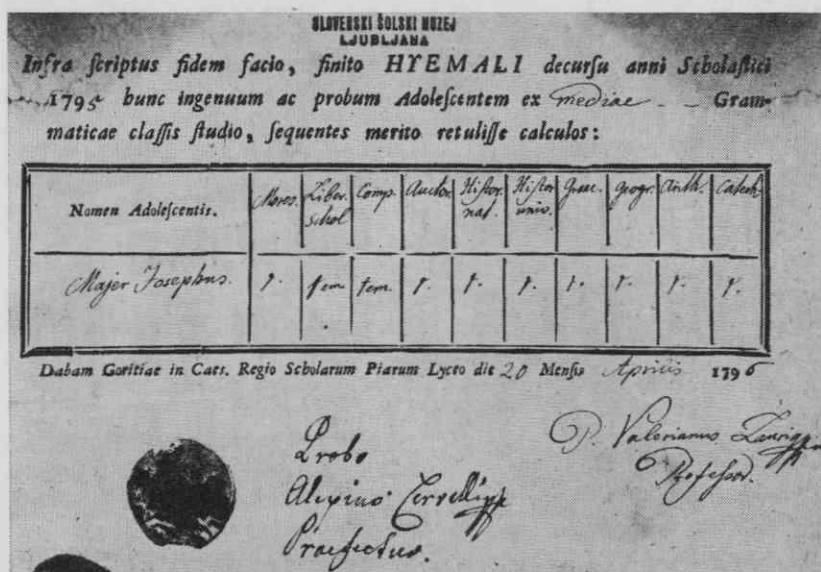 SLOVENSKI ŠOLSKI MUZEJ
LJUBLJANA
Infra ſcriptus fidem facio, finito HYEMALI decurſu anni Scholaſtici
1795 hunc ingenuum ac probum Adoleſcentem ex mediae - - Gram-
maticae claſſis ſtudio, ſequentes merito retuliſſe calculos:
Nomen Adoleſcentis. Mores. Liber. schol Comp. Auctor. Hiſtor. nat. Hiſtor univ. Graec. Geogr. Arith. Catech.
Majer Josephus. 1. 1 em. 1 em. 1. 1. 1. 1. 1. 1. 1.
Dabam Goritiae in Caeſ. Regio Scholarum Piarum Lyceo die 20 Menſis Aprilis 1796
P. Valerianus
Profeſsor.
Probo
Praefectus.